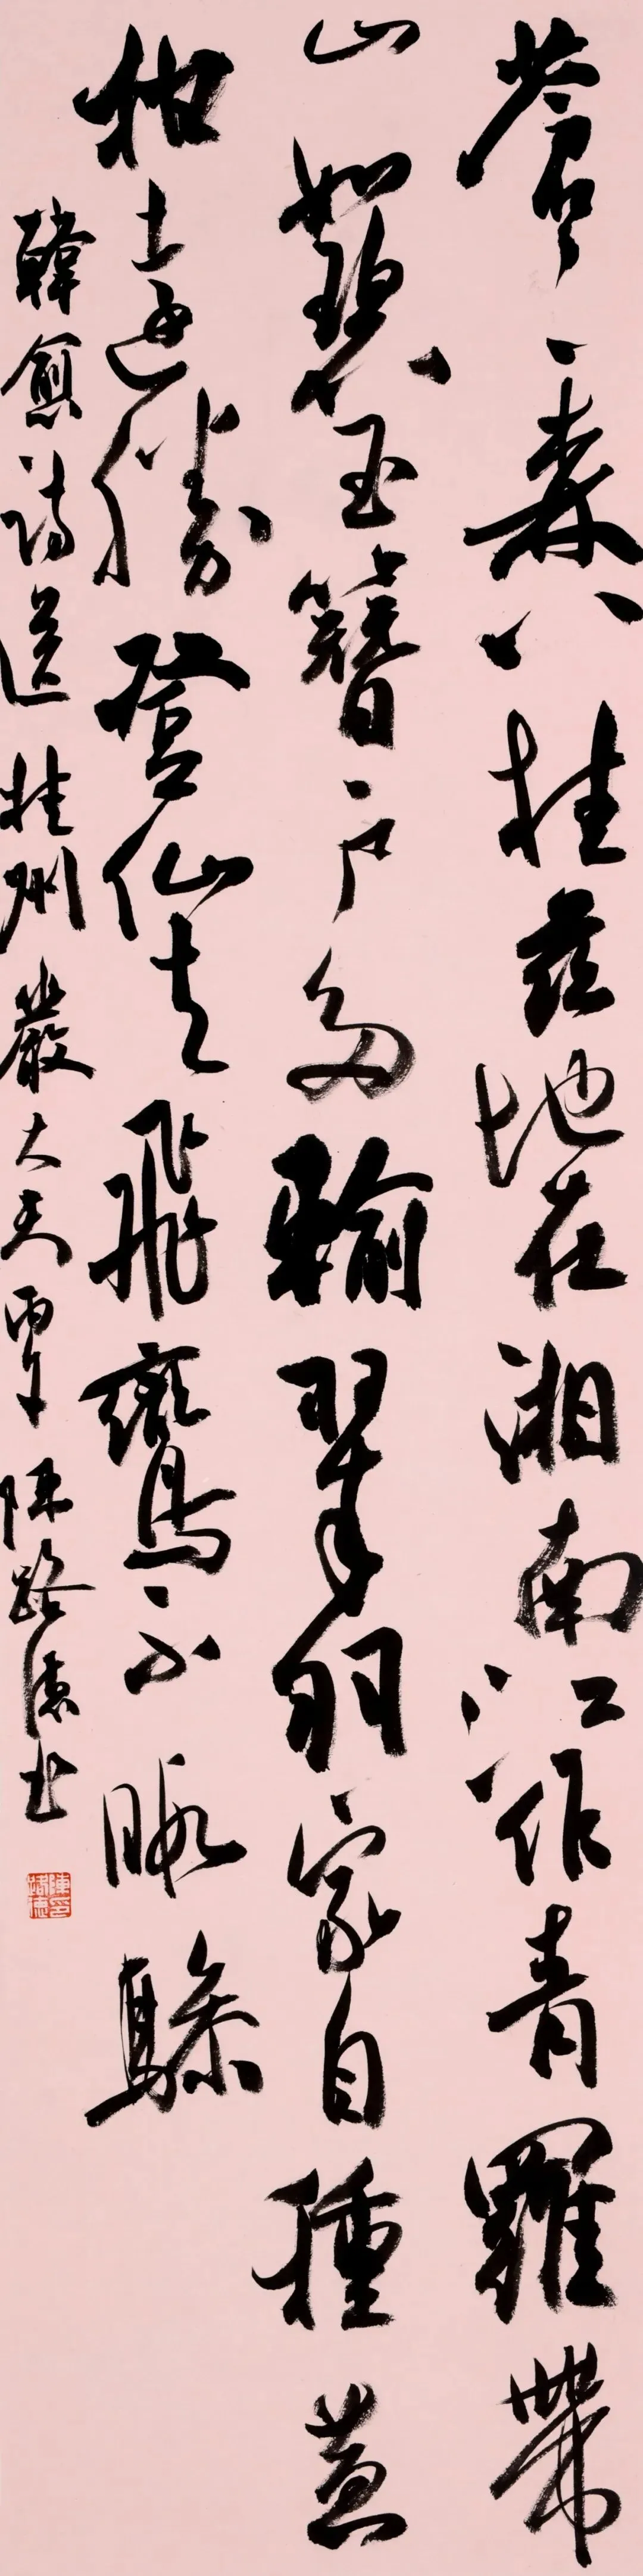 蒼々森八桂茲地在湘南江作青羅帶
山如碧玉簪戶多輸翠羽家自種黃
柑遠勝登仙去飛鸞不暇驂
韓愈詩送桂州嚴大夫丙午陳路德書